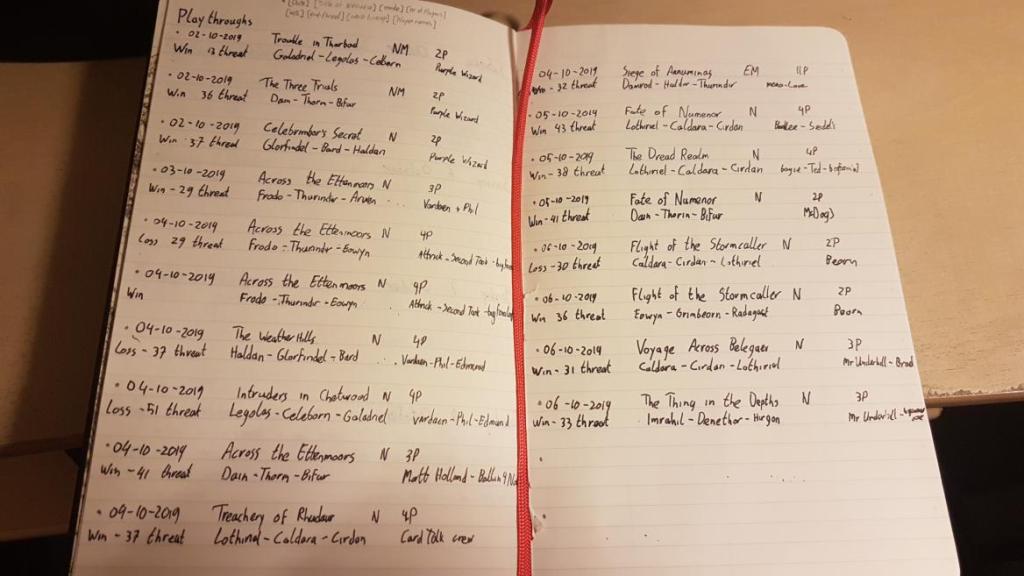 • [Date] [Title of scenario] [mode] [nr of Players]
[W/L] [end threat] [Player names]
Play throughs
• 02-10-2019 Trouble in Tharbad NM 2P
Win 13 threat Galadriel-Legolas-Celborn Purple Wizard
• 02-10-2019 The Three Trials NM 2P
Win 36 threat Dain-Thorin-Bifur Purple Wizard
• 02-10-2019 Celebrimbor's Secret N 2P
Win 37 threat Glorfindel-Bard-Haldan Purple Wizard
• 03-10-2019 Across the Ettenmoors N 3P
Win-29 threat Frodo-Thurindir-Arwen ... Vardaen + Phil
• 04-10-2019 Across the Ettenmoors N 4P
Loss 29 threat Frodo-Thurindir-Eowyn Attrick-Second Took
• 04-10-2019 Across the Ettenmoors N 4P
Win Frodo-Thurindir-Eowyn Attrick-Second Took
• 04-10-2019 The Weather Hills N 4P
Loss-37 threat Haldan-Glorfindel-Bard ... Vardaen-Phil-Edmund
• 04-10-2019 Intruders in Chetwood N 4P
Loss-51 threat Legolas-Celeborn-Galadriel Vardaen-Phil-Edmund
• 04-10-2019 Across the Ettenmoors N 3P
Win-41 threat Dain-Thorin-Bifur Matt Holland-
• 04-10-2019 Treachery of Rhudaur N 4P
Win-37 threat Lothiriel-Caldara-Cirdan Card Talk crew
04-10-2019 Siege of Annuminas EM 11P
Win-32 threat Damrod-Haldir-Thurindir
• 05-10-2019 Fate of Numenor N 4P
Win 43 threat Lothiriel-Caldara-Cirdan
• 05-10-2019 The Dread Realm N 4P
Win-38 threat Lothiriel-Caldara-Cirdan
• 05-10-2019 Fate of Numenor N 2P
Win-41 threat Dain-Thorin-Bifur McDog3
• 06-10-2019 Flight of the Stormcaller N 2P
Loss-30 threat Caldara-Cirdan-Lothiriel Beorn
• 06-10-2019 Flight of the Stormcaller N 2P
Win 36 threat Eowyn-Grimbeorn-Radagast Beorn
• 06-10-2019 Voyage Across Belegaer N 3P
Win-31 threat Caldara-Cirdan-Lothiriel Mr Underhill-
• 06-10-2019 The Thing in the Depths N 3P
Win-33 threat Imrahil-Denethor-Hirgon Mr Underhill-